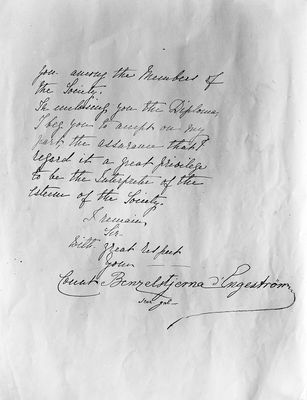 you among the Members of
the Society.
In inclosing you the Diploma,
I beg you to accept on my
part the assurance that I
regard it a great privilege
to be the Interpreter of the
esteem of the Society.
I remain,
Sir
With great respect
Yours
Count Benzelstjerna d'Engeström